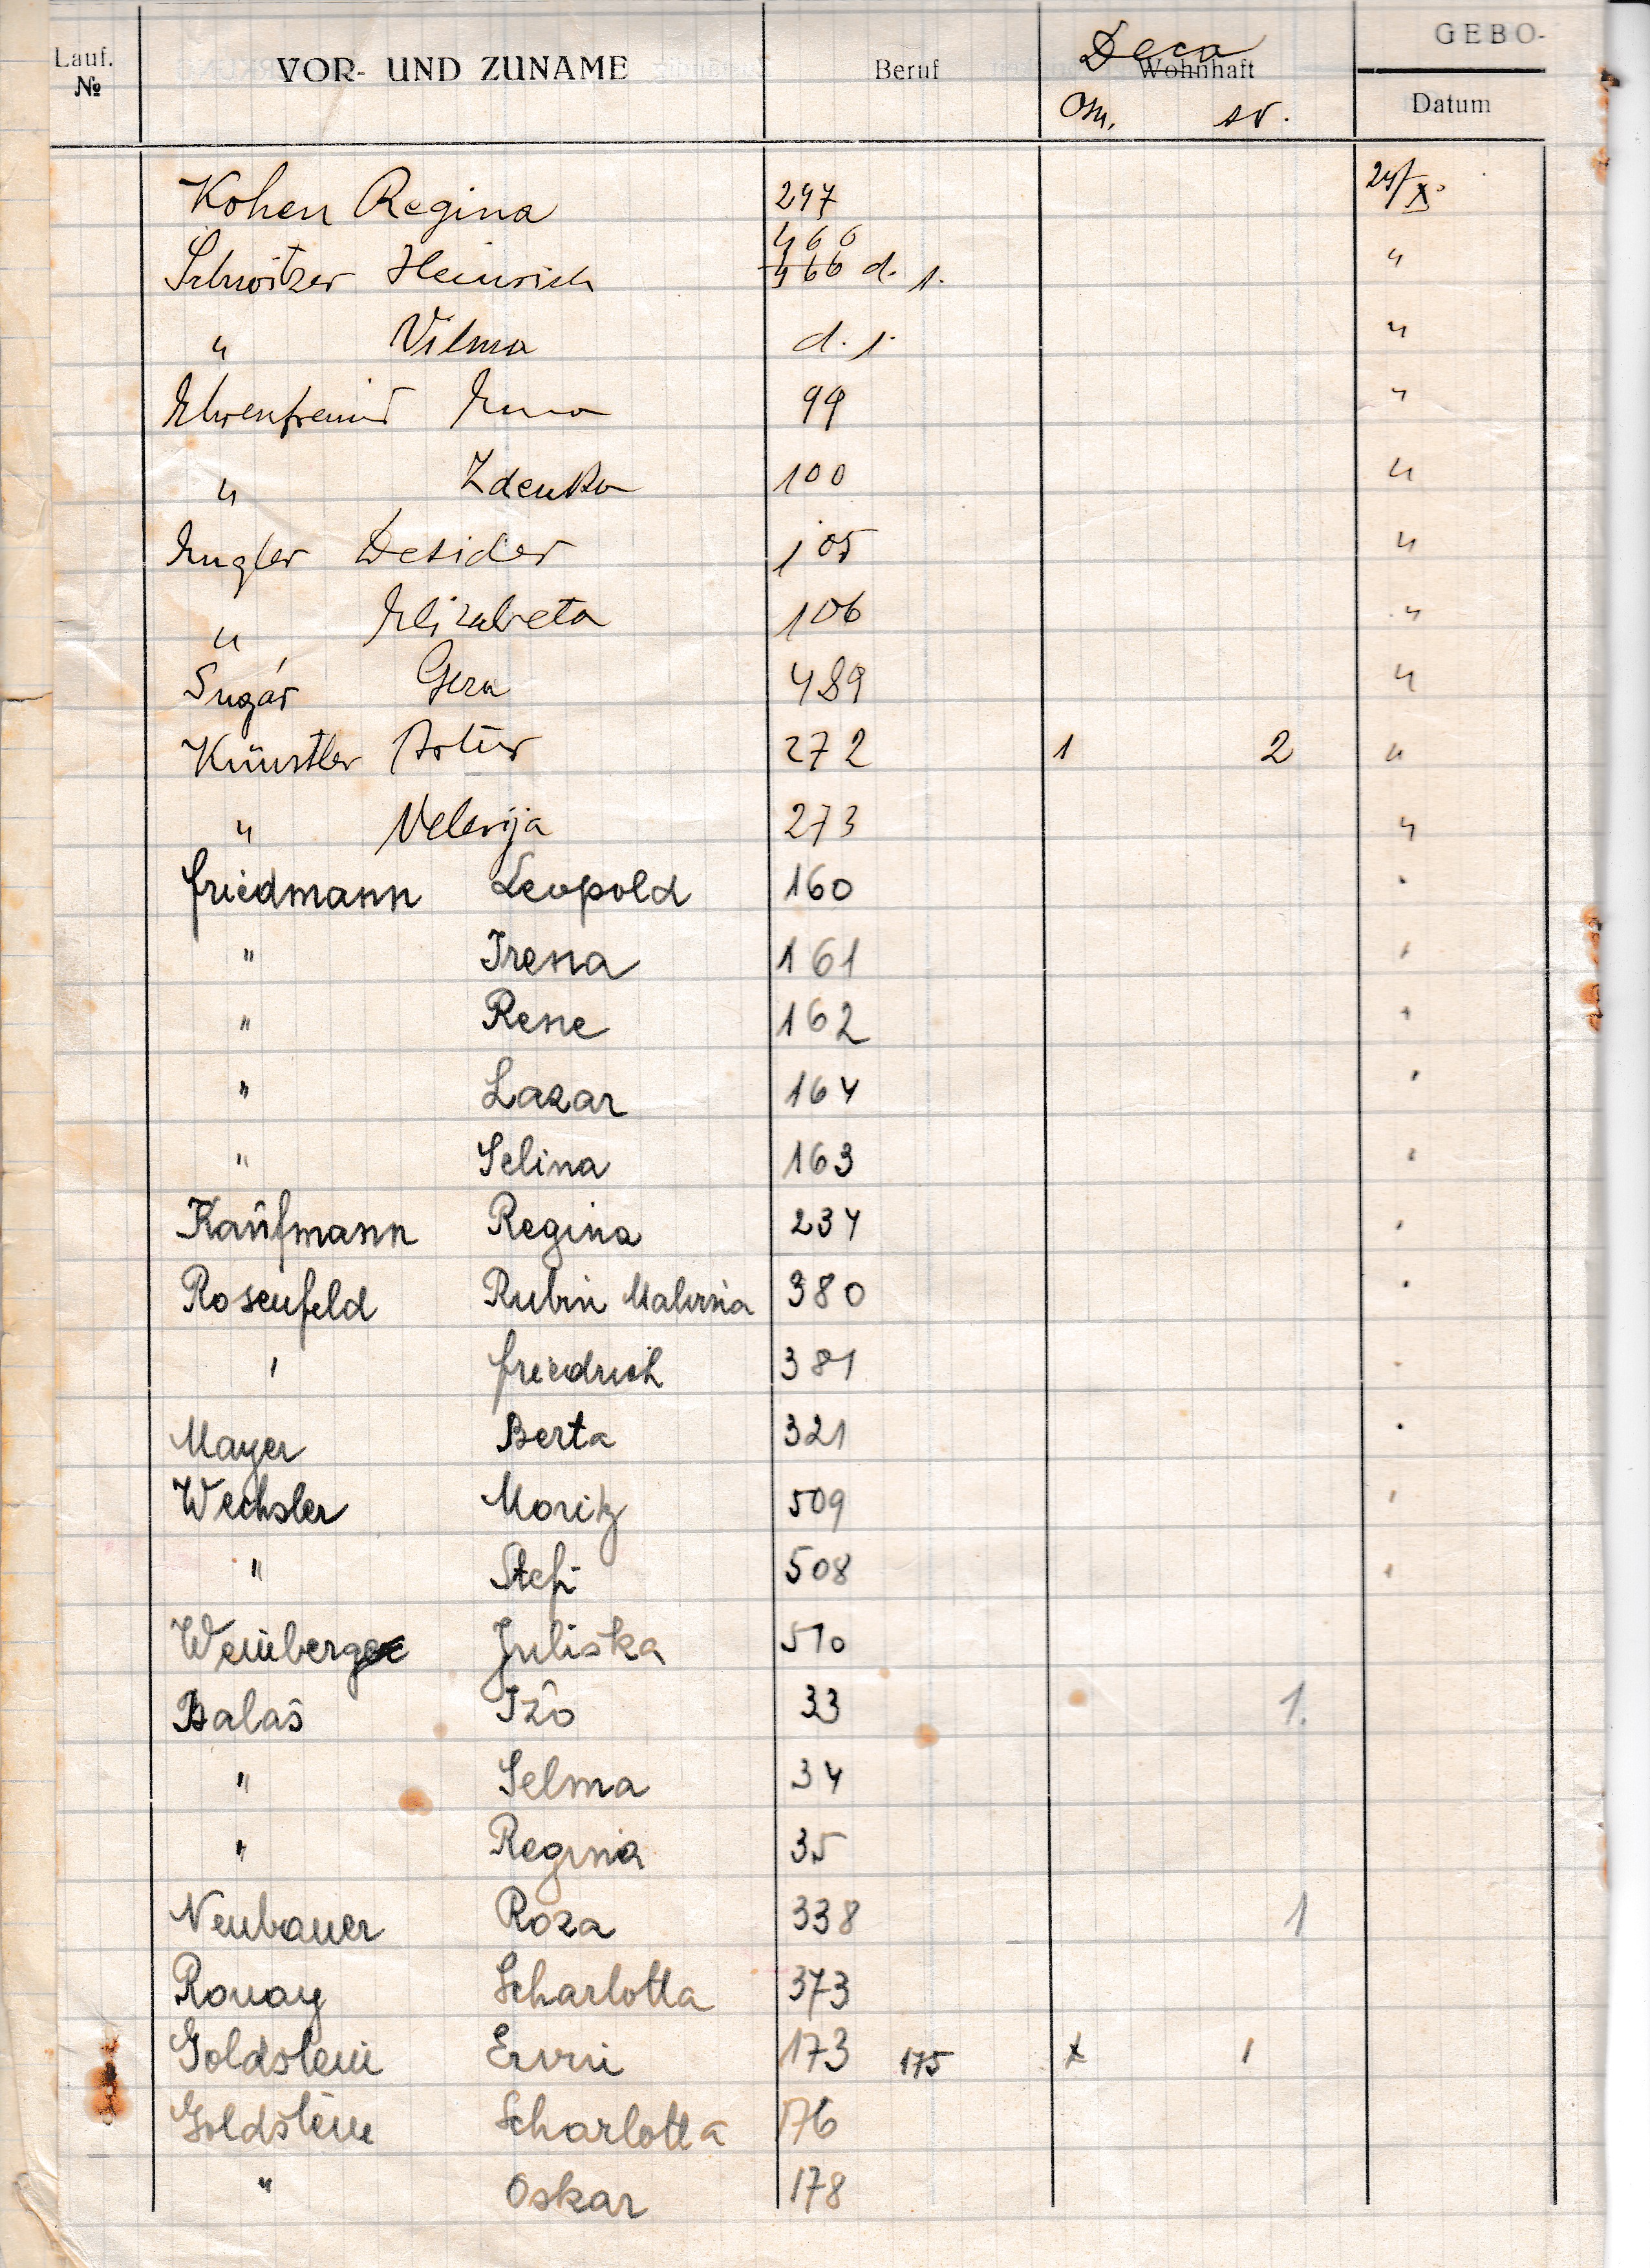 Lauf. № VOR- UND ZUNAME Beruf Wohnhaft GEBO-
Deca
Om. sv. Datum
Kohen Regina 247 24/X.
466
Schwitzer Heinrich 466 d. 1. "
" Vilma d. 1. "
Ehrenfreund Erna 99 "
" Zdenka 100 "
Engler Desider 105 "
" Elizabeta 106 "
Sugár Geza 489 "
Künstler Artur 272 1 2 "
" Valerija 273 "
Friedmann Leopold 160 "
" Irena 161 "
" Rene 162 "
" Lazar 164 "
" Selina 163 "
Kaufmann Regina 234 "
Rosenfeld Rubin Malvina 380 "
" Friedrich 381 "
Mayer Berta 321 "
Wechsler Moritz 509 "
" Stefi 508 "
Weinberger Juliska 510
Balaš Izo 33 1.
" Selma 34
" Regina 35
Neubauer Roza 338 1
Ronay Scharlotta 373
Goldstein Ervin 173 175 x 1
Goldstein Scharlotta 176
" Oskar 178